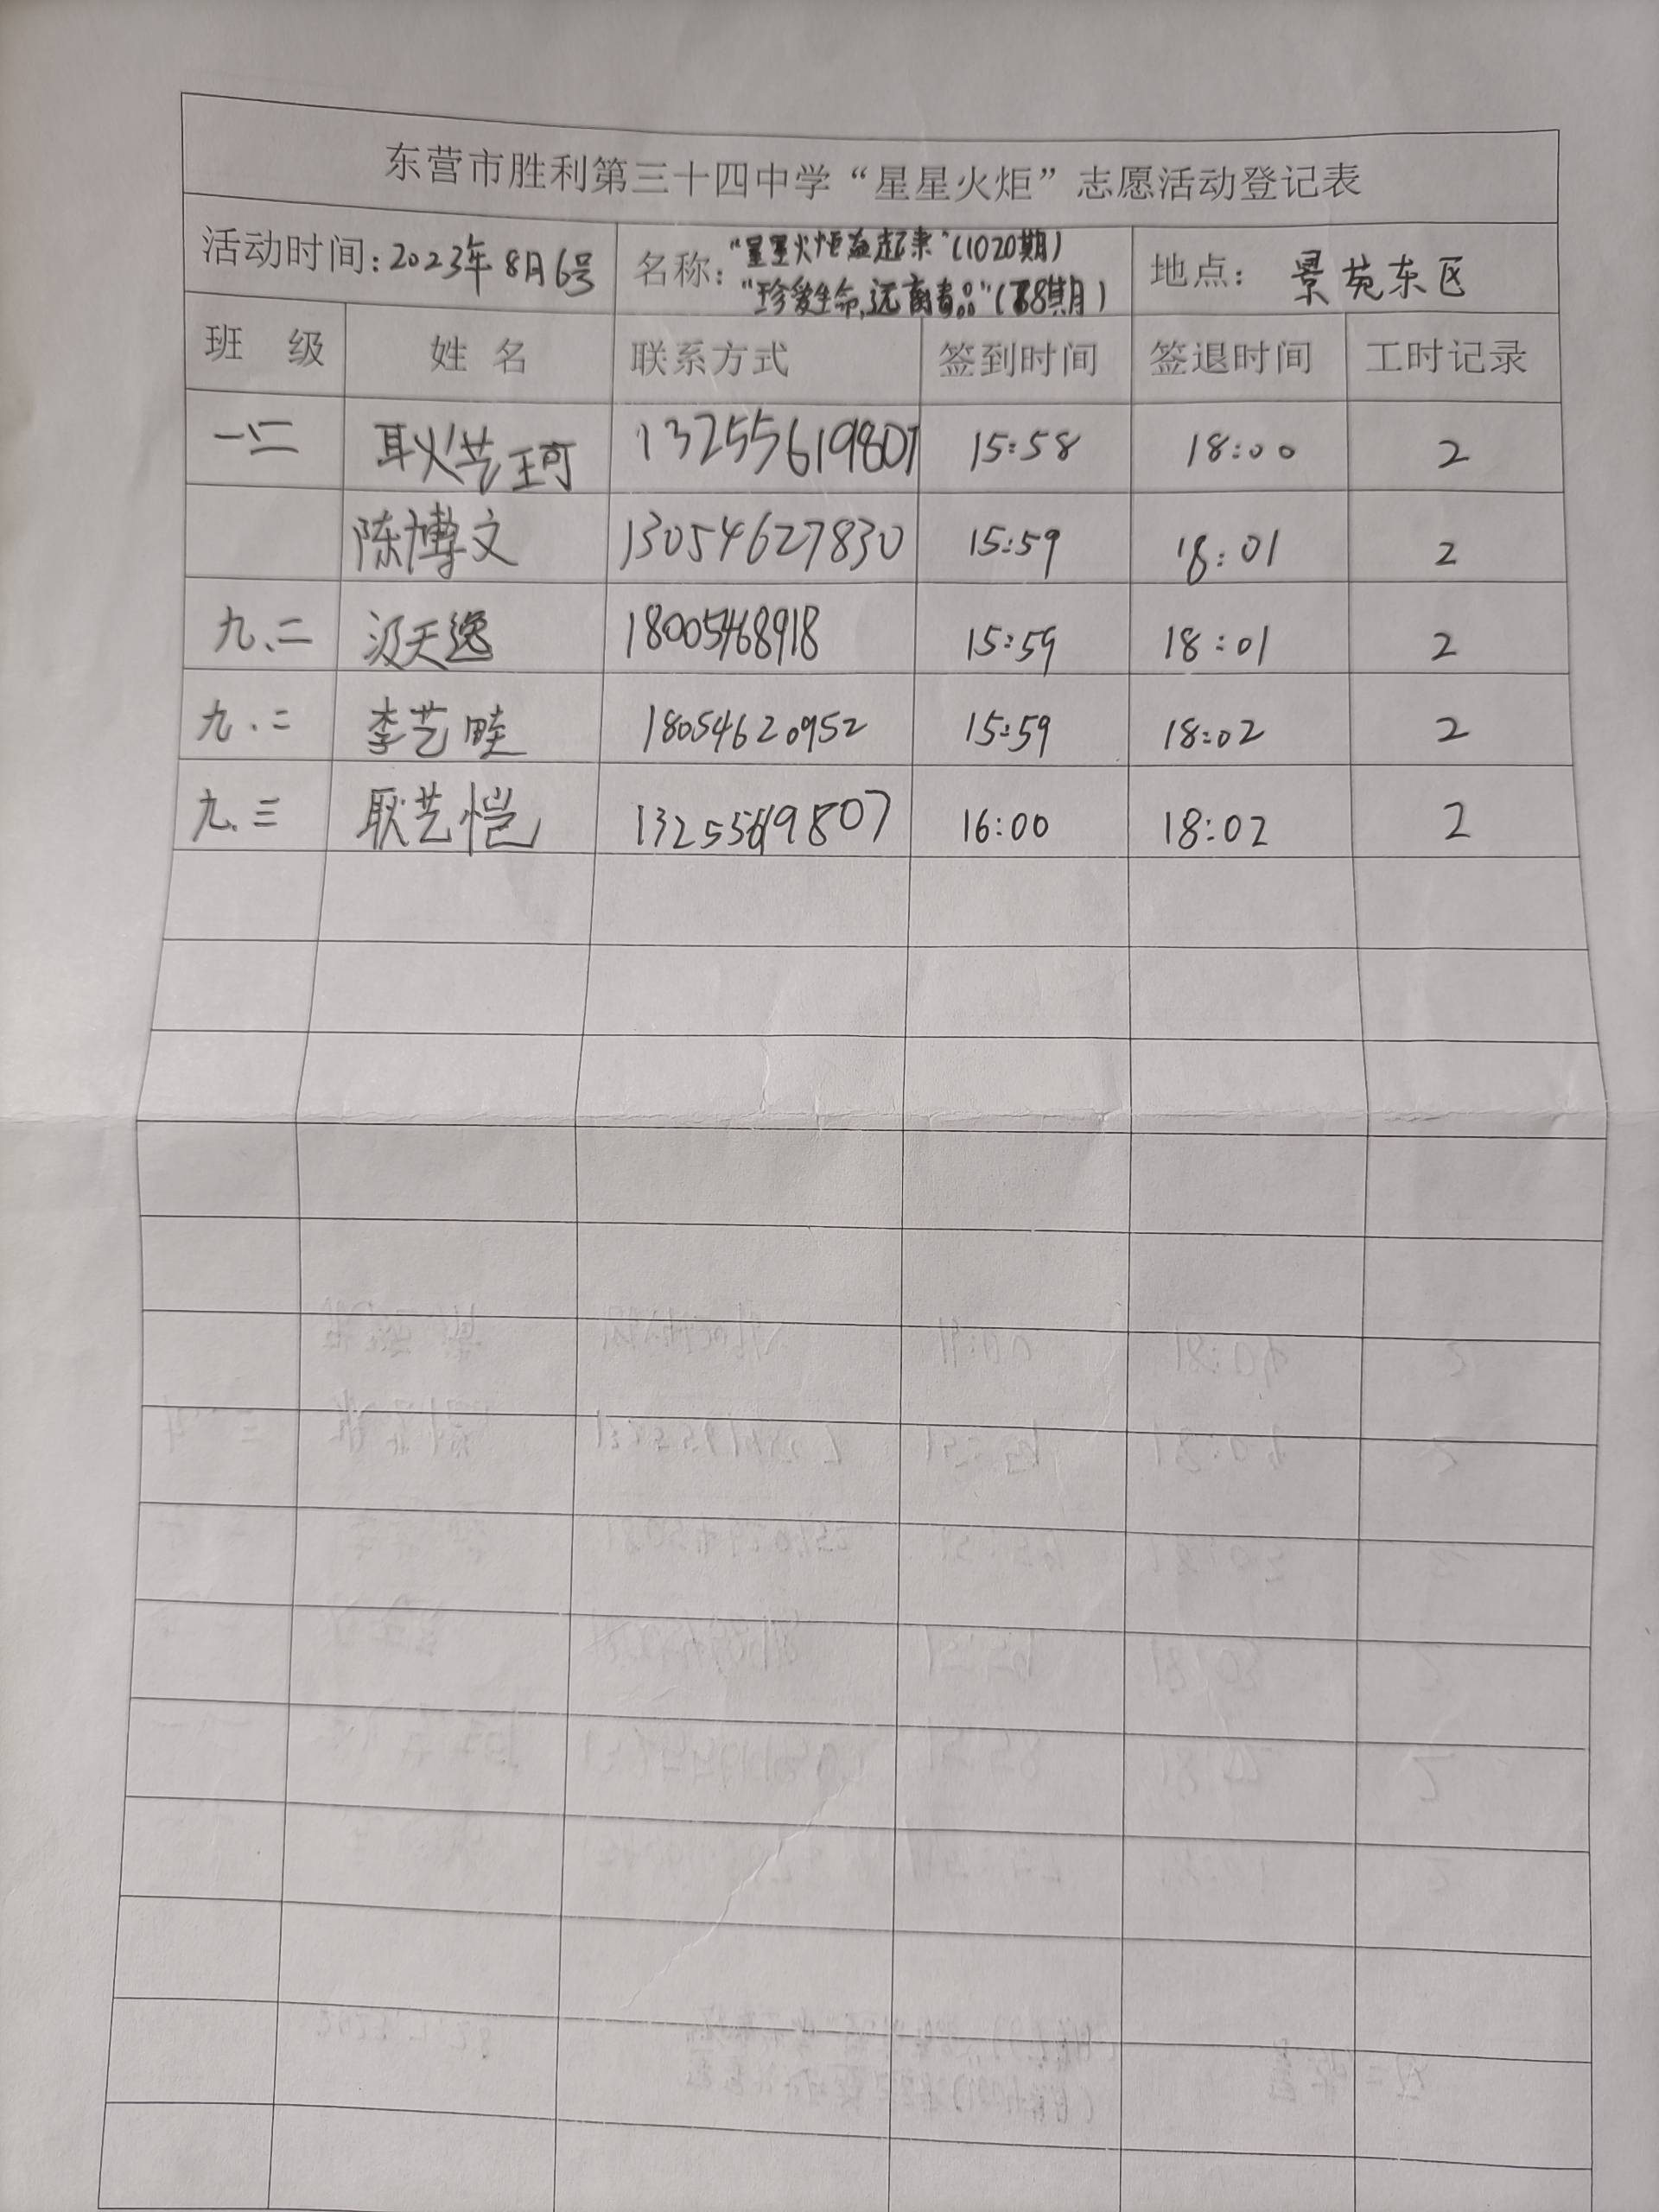 东营市胜利第三十四中学“星星火炬”志愿活动登记表
活动时间:2023年8月6号 名称:“星星火炬益起来”(1020期) 地点: 景苑东区
“珍爱生命,远离毒品”( 8期)
班 级 姓 名 联系方式 签到时间 签退时间 工时记录
一、二 耿艺珂 13255619807 15:58 18:00 2
陈博文 13054627830 15:59 18:01 2
九、二 汲天逸 18005468918 15:59 18:01 2
九.二 李艺畦 18054620952 15:59 18:02 2
九.三 耿艺恺 13255619807 16:00 18:02 2